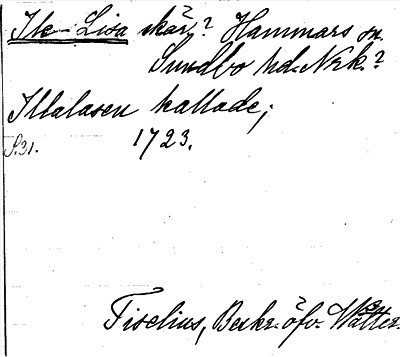 Ile-Lisa skär,? Hammars sn
Sundbo hd. Nrk.?
Illalasen kallade;
S.31. 1723.
Tiselius, Beskr. öfv. Wätter-